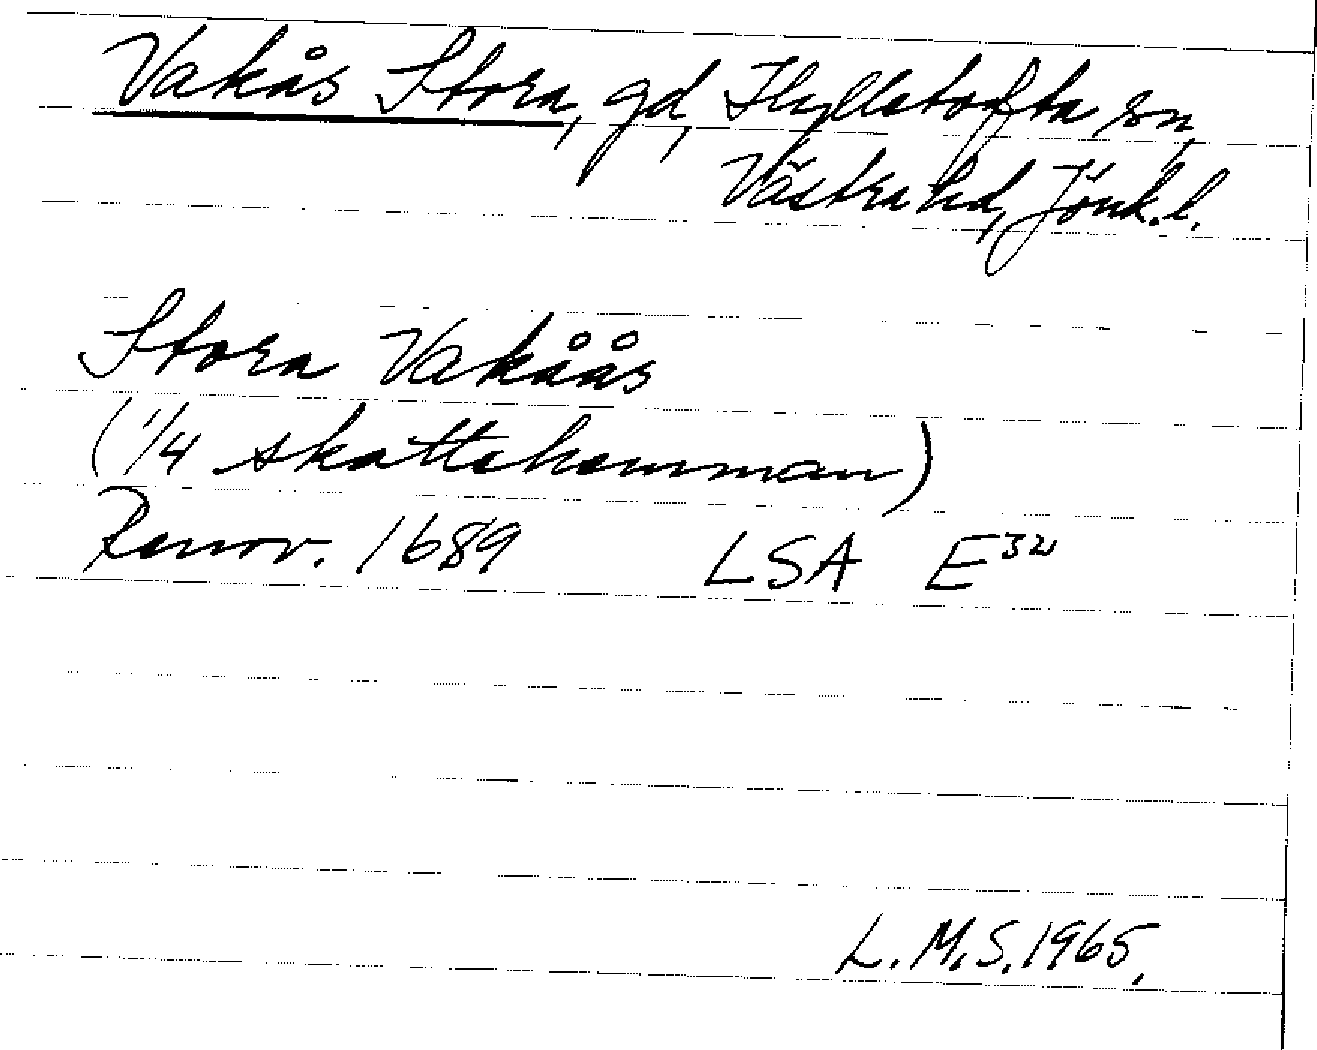 Vakås Stora, gd, Hyllstofta sn,
Västra hd, Jönk. l.
Stora Vakåås
(1/4 skattehemman)
Renov. 1689 LSA E³²
L. M. S. 1965.